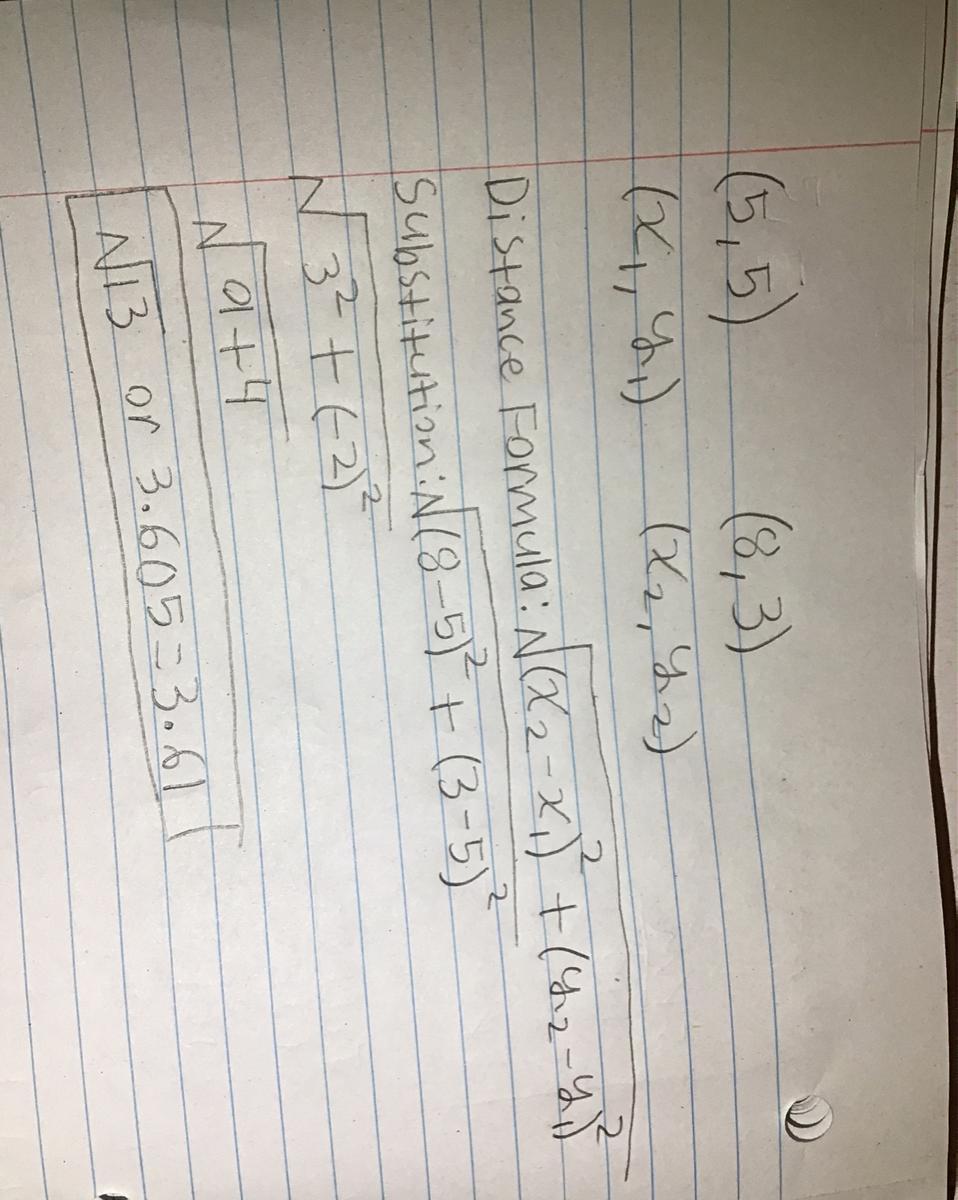 (5,5) (8,3)
(x₁, y₁) (x₂, y₂)
Distance Formula: √(x₂-x₁)² + (y₂-y₁)²
Substitution: √(8-5)² + (3-5)²
√3² + (-2)²
√9+4
√13 or 3.605=3.61